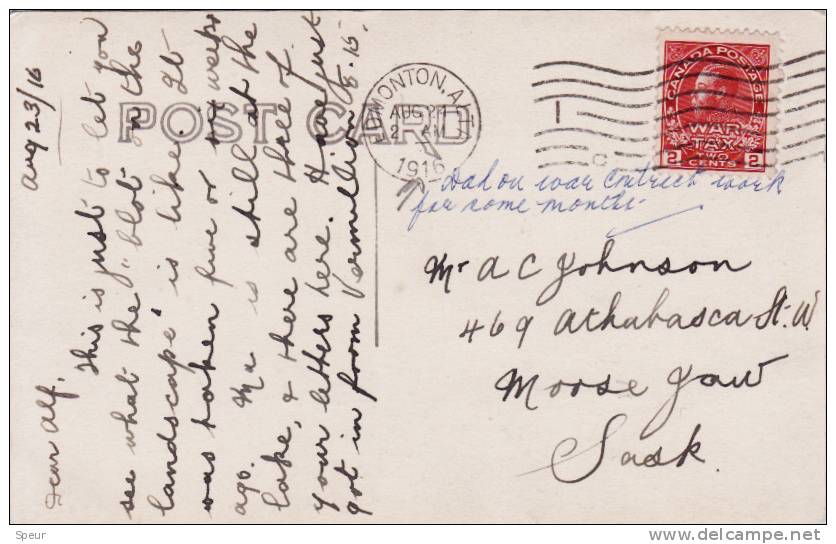 Aug 23/16
Dear Alf,
This is just to let you
see what the "blot on the
landscape" is like. It
was taken five or six weeks
ago. Ma is still at the
lake, & there are three of
your letters here. Have just
got in from Vermillion 8.15.
POST CARD
EDMONTON, ALTA
AUG
2 AM
1916
CANADA POSTAGE
WAR
TAX
2 TWO CENTS 2
Dad on war contract work
for some months
Mr A C Johnson
469 Athabasca St. W
Moose Jaw
Sask.
Speur
delcampe.net